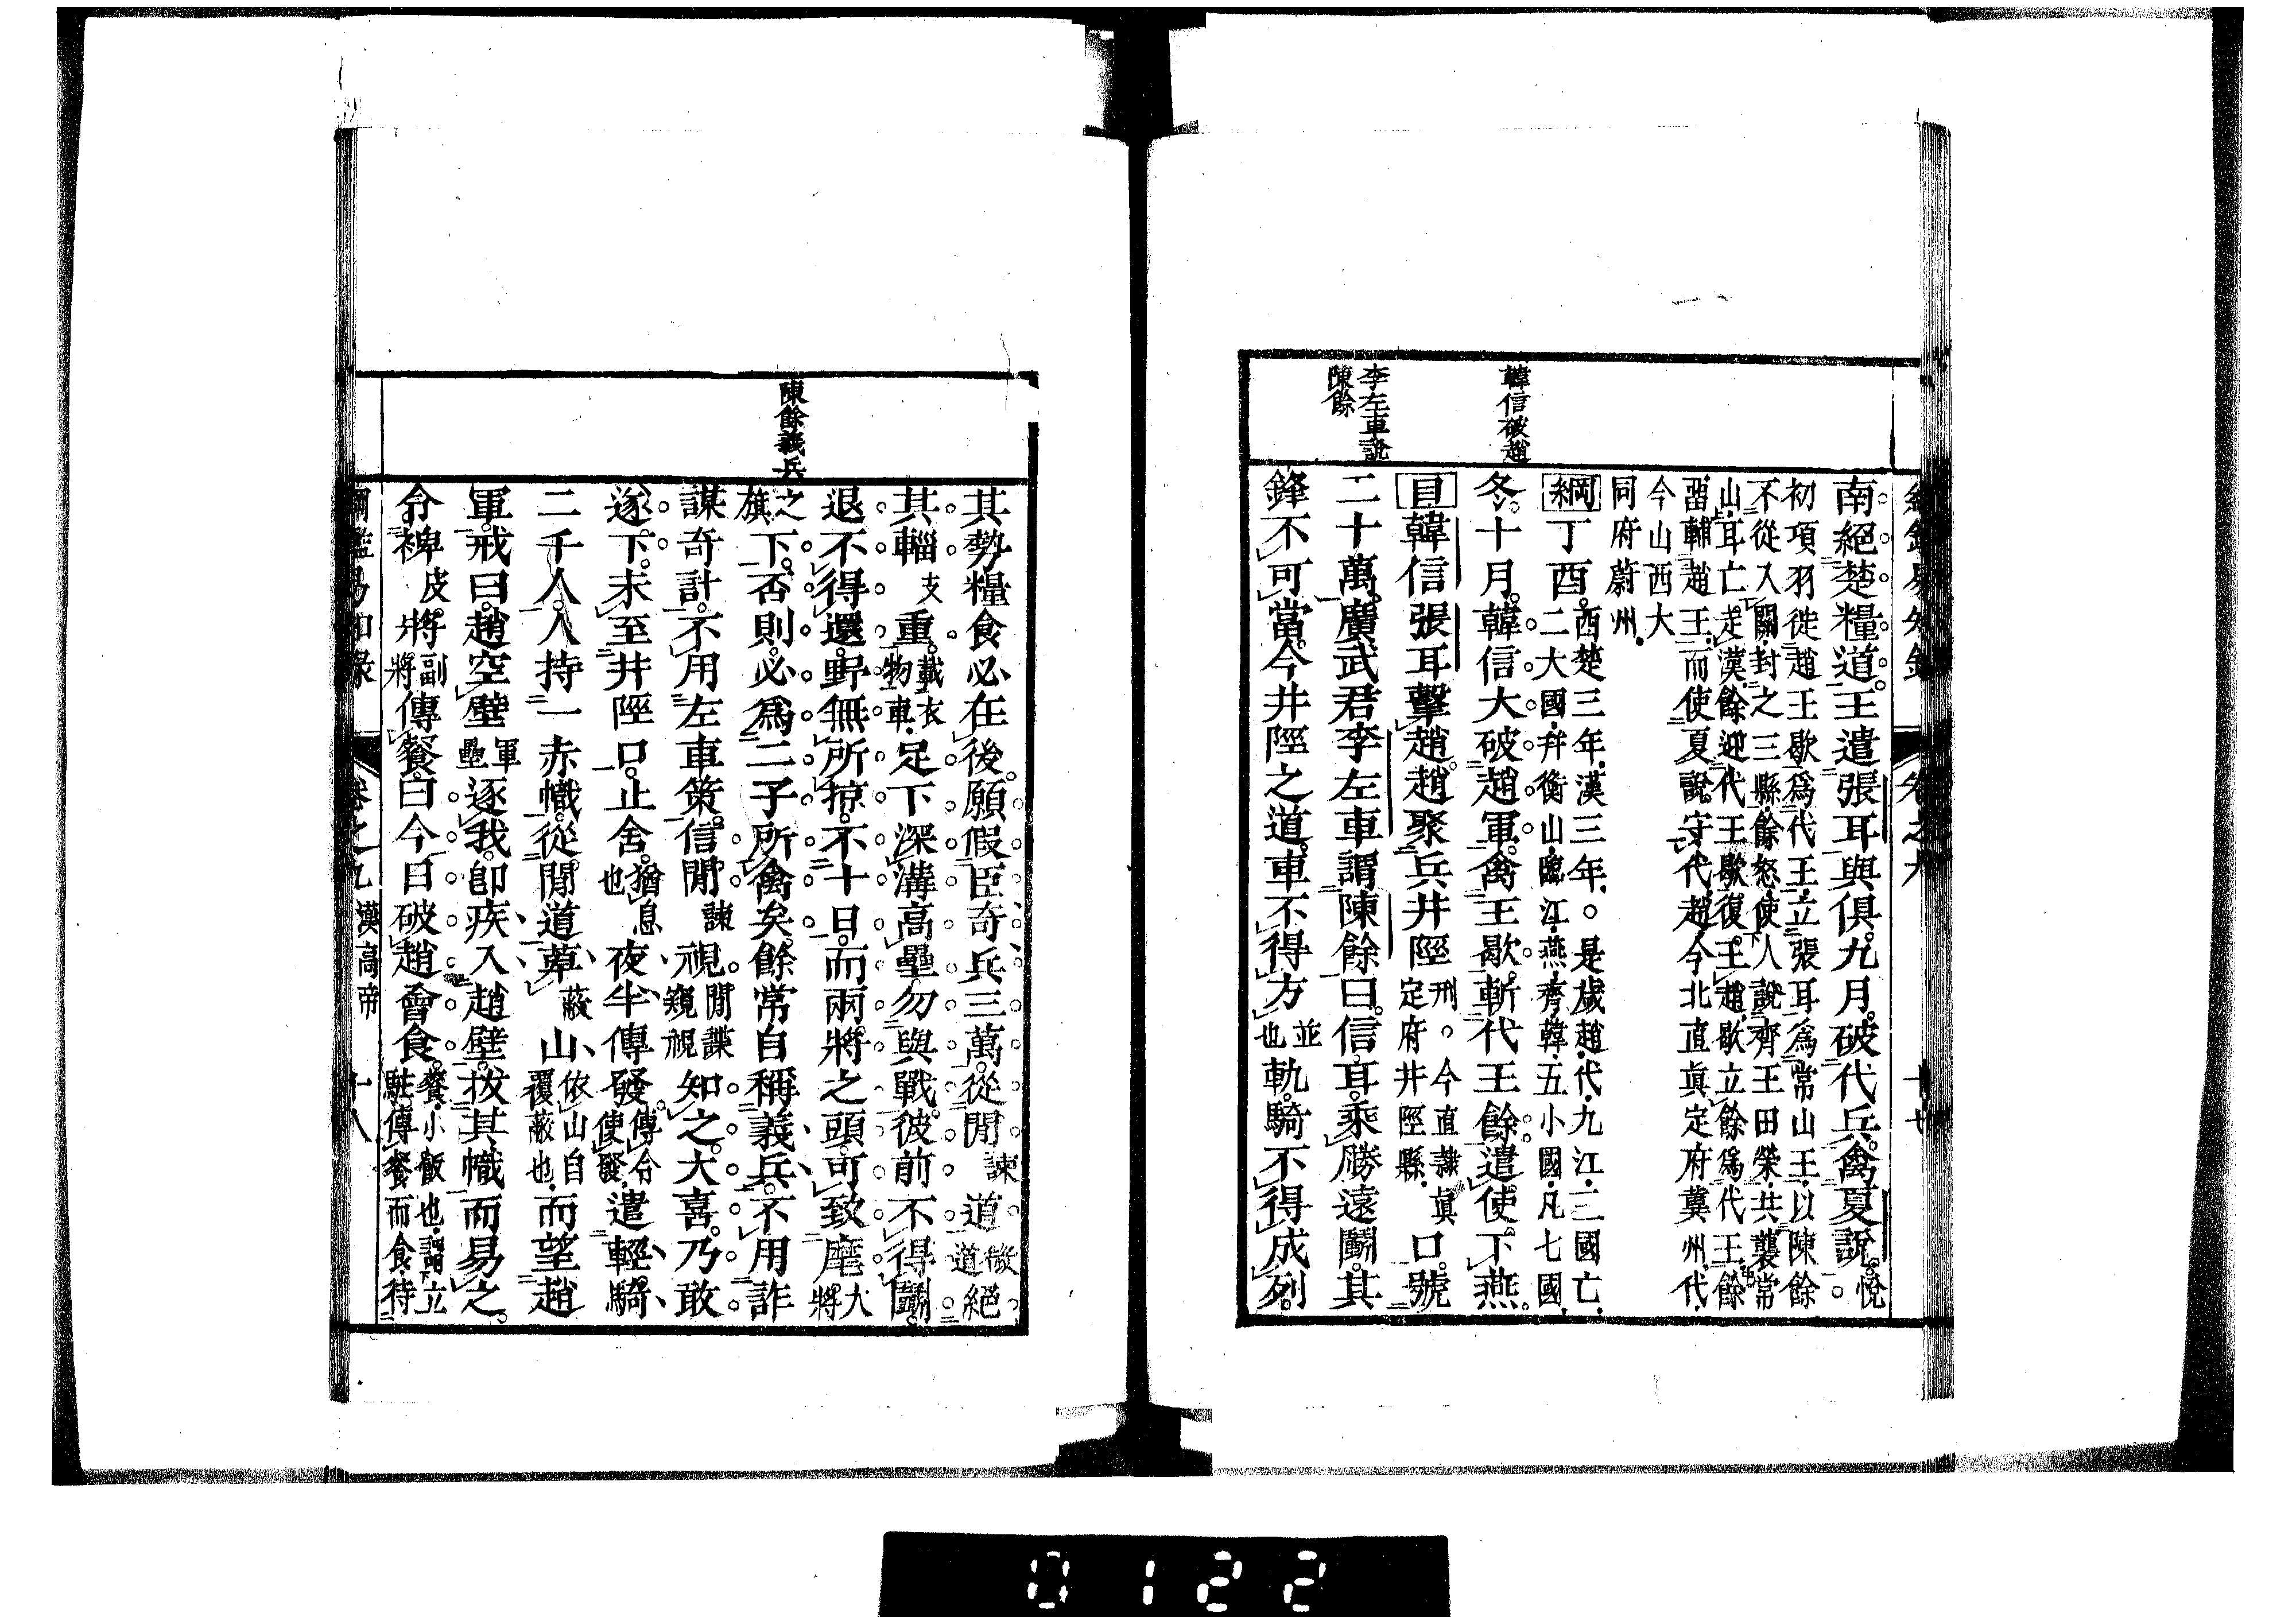 韓信破趙
李左車說
陳餘
南絕楚糧道。王遣張耳與俱。九月。破代兵。禽夏說。悅。
初項羽徙趙王歇爲代王。立張耳爲常山王。以陳餘
不從入關。封之三縣。餘怒。使人說齊王田榮。共襲常
山。耳亡走漢。餘迎代王歇復王趙。歇立餘爲代王。餘
畱輔趙王。而使夏說。守代。趙。今北直眞定府冀州。代。
今山西大
同府蔚州。
綱丁酉。西楚三年。漢三年。○是歲趙。代。九江。三國亡。
二大國。幷衡山。臨江。燕。齊。韓。五小國。凡七國。
冬。十月。韓信大破趙軍。禽王歇。斬代王餘。遣使下燕。
目韓信張耳擊趙。趙聚兵井陘刑。○今直隸眞
定府井陘縣。口。號
二十萬。廣武君李左車謂陳餘曰。信耳。乘勝遠鬭。其
鋒不可當。今井陘之道。車不得方並
也軌。騎不得成列。
卷之九
陳餘義兵
其勢糧食必在後。願假臣奇兵三萬。從閒諫道微
道絕
其輜支重。載衣
物車。足下深溝高壘。勿與戰。彼前不得鬭。
退不得還。野無所掠。不十日。而兩將之頭。可致麾大
將
之
旗下。否則。必爲二子所禽矣。餘常自稱義兵。不用詐
謀奇計。不用左車策。信閒諫視閒諜
窺視知之。大喜。乃敢
遂下。未至井陘口。止舍。猶息
也夜半傳發。傳令
使發。遣輕騎
二千人。人持一赤幟。從閒道萆蔽山依山自
覆蔽也。而望趙
軍。戒曰。趙空壁軍
壘逐我。卽疾入趙壁。拔其幟而易之。
令裨皮。將副
將傳餐。曰今日破趙會食。餐。小飯也。謂立
駐傳餐而食。待
綱鑑易知錄 卷之九 漢高帝 十八